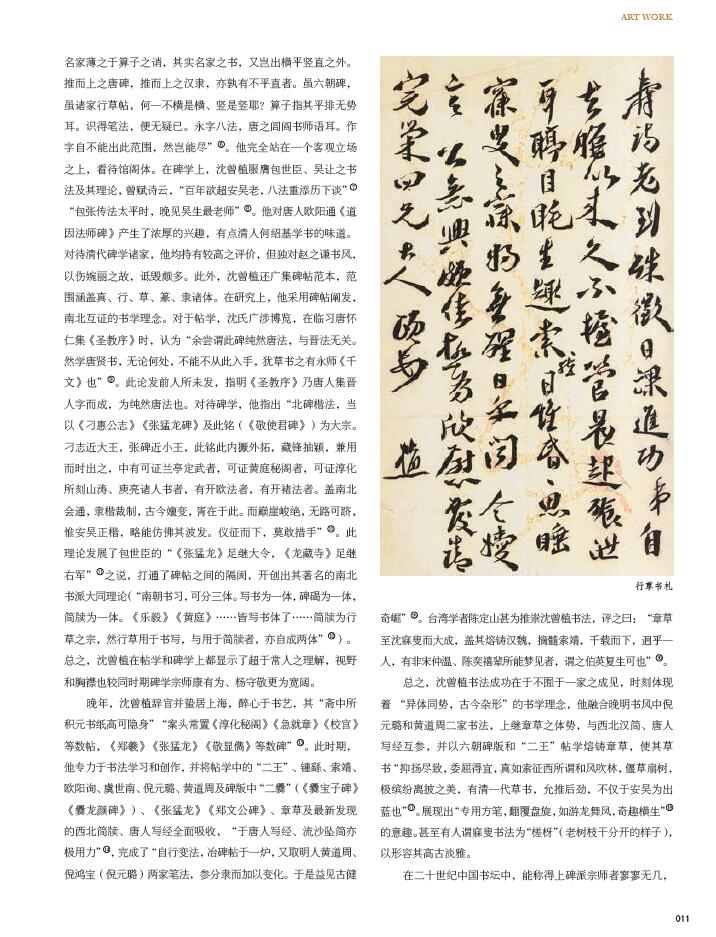 ART WORK
名家薄之于算子之诮，其实名家之书，又岂出横平竖直之外。
推而上之唐碑，推而上之汉隶，亦孰有不平直者。虽六朝碑，
虽诸家行草帖，何一不横是横、竖是竖耶？算子指其平排无势
耳。识得笔法，便无疑已。永字八法，唐之闾阎书师语耳。作
字自不能出此范围，然岂能尽”⑥。他完全站在一个客观立场
之上，看待馆阁体。在碑学上，沈曾植服膺包世臣、吴让之书
法及其理论，曾赋诗云，“百年欲超安吴老，八法重添历下谈”⑦
“包张传法太平时，晚见吴生最老师”⑧。他对唐人欧阳通《道
因法师碑》产生了浓厚的兴趣，有点清人何绍基学书的味道。
对待清代碑学诸家，他均持有较高之评价，但独对赵之谦书风，
以伤婉丽之故，诋毁颇多。此外，沈曾植还广集碑帖范本，范
围涵盖真、行、草、篆、隶诸体。在研究上，他采用碑帖阐发，
南北互证的书学理念。对于帖学，沈氏广涉博览，在临习唐怀
仁集《圣教序》时，认为“余尝谓此碑纯然唐法，与晋法无关。
然学唐贤书，无论何处，不能不从此入手，犹草书之有永师《千
文》也”⑨。此论发前人所未发，指明《圣教序》乃唐人集晋
人字而成，为纯然唐法也。对待碑学，他指出“北碑楷法，当
以《刁惠公志》《张猛龙碑》及此铭（《敬使君碑》）为大宗。
刁志近大王，张碑近小王，此铭此内擫外拓，藏锋抽颖，兼用
而时出之，中有可证兰亭定武者，可证黄庭秘阁者，可证淳化
所刻山涛、庾亮诸人书者，有开欧法者，有开褚法者。盖南北
会通，隶楷裁制，古今嬗变，胥在于此。而巅崖峻绝，无路可跻，
惟安吴正楷，略能仿佛其波发。仪征而下，莫敢措手”⑩。此
理论发展了包世臣的“《张猛龙》足继大令，《龙藏寺》足继
右军”⑪之说，打通了碑帖之间的隔阂，开创出其著名的南北
书派大同理论（“南朝书习，可分三体。写书为一体，碑碣为一体，
简牍为一体。《乐毅》《黄庭》……皆写书体了……简牍为行
草之宗，然行草用于书写，与用于简牍者，亦自成两体”⑫）。
总之，沈曾植在帖学和碑学上都显示了超于常人之理解，视野
和胸襟也较同时期碑学宗师康有为、杨守敬更为宽阔。
晚年，沈曾植辞官并蛰居上海，醉心于书艺，其“斋中所
积元书纸高可隐身”“案头常置《淳化秘阁》《急就章》《校官》
等数帖，《郑羲》《张猛龙》《敬显儁》等数碑”⑬。此时期，
他专力于书法学习和创作，并将帖学中的“二王”、锺繇、索靖、
欧阳询、虞世南、倪元璐、黄道周及碑版中“二爨”（《爨宝子碑》
《爨龙颜碑》）、《张猛龙》《郑文公碑》、章草及最新发现
的西北简牍、唐人写经全面吸收，“于唐人写经、流沙坠简亦
极用力”⑭，完成了“自行变法，冶碑帖于一炉，又取明人黄道周、
倪鸿宝（倪元璐）两家笔法，参分隶而加以变化。于是益见古健
行草书札
奇崛”⑮。台湾学者陈定山甚为推崇沈曾植书法，评之曰：“章草
至沈寐叟而大成，盖其熔铸汉魏，摘髓索靖，千载而下，迥乎一
人，有非宋仲温、陈奕禧辈所能梦见者，谓之伯英复生可也”⑯。
总之，沈曾植书法成功在于不囿于一家之成见，时刻体现
着 “异体同势，古今杂形”的书学理念，他融合晚明书风中倪
元璐和黄道周二家书法，上继章草之体势，与西北汉简、唐人
写经互参，并以六朝碑版和“二王”帖学熔铸章草，使其草
书“抑扬尽致，委屈得宜，真如索征西所谓和风吹林，偃草扇树，
极缤纷离披之美，有清一代草书，允推后劲，不仅于安吴为出
蓝也”⑰。展现出“专用方笔，翻覆盘旋，如游龙舞凤，奇趣横生”⑱
的意趣。甚至有人谓寐叟书法为“槎枒”（老树枝干分开的样子），
以形容其高古淡雅。
在二十世纪中国书坛中，能称得上碑派宗师者寥寥无几，
011